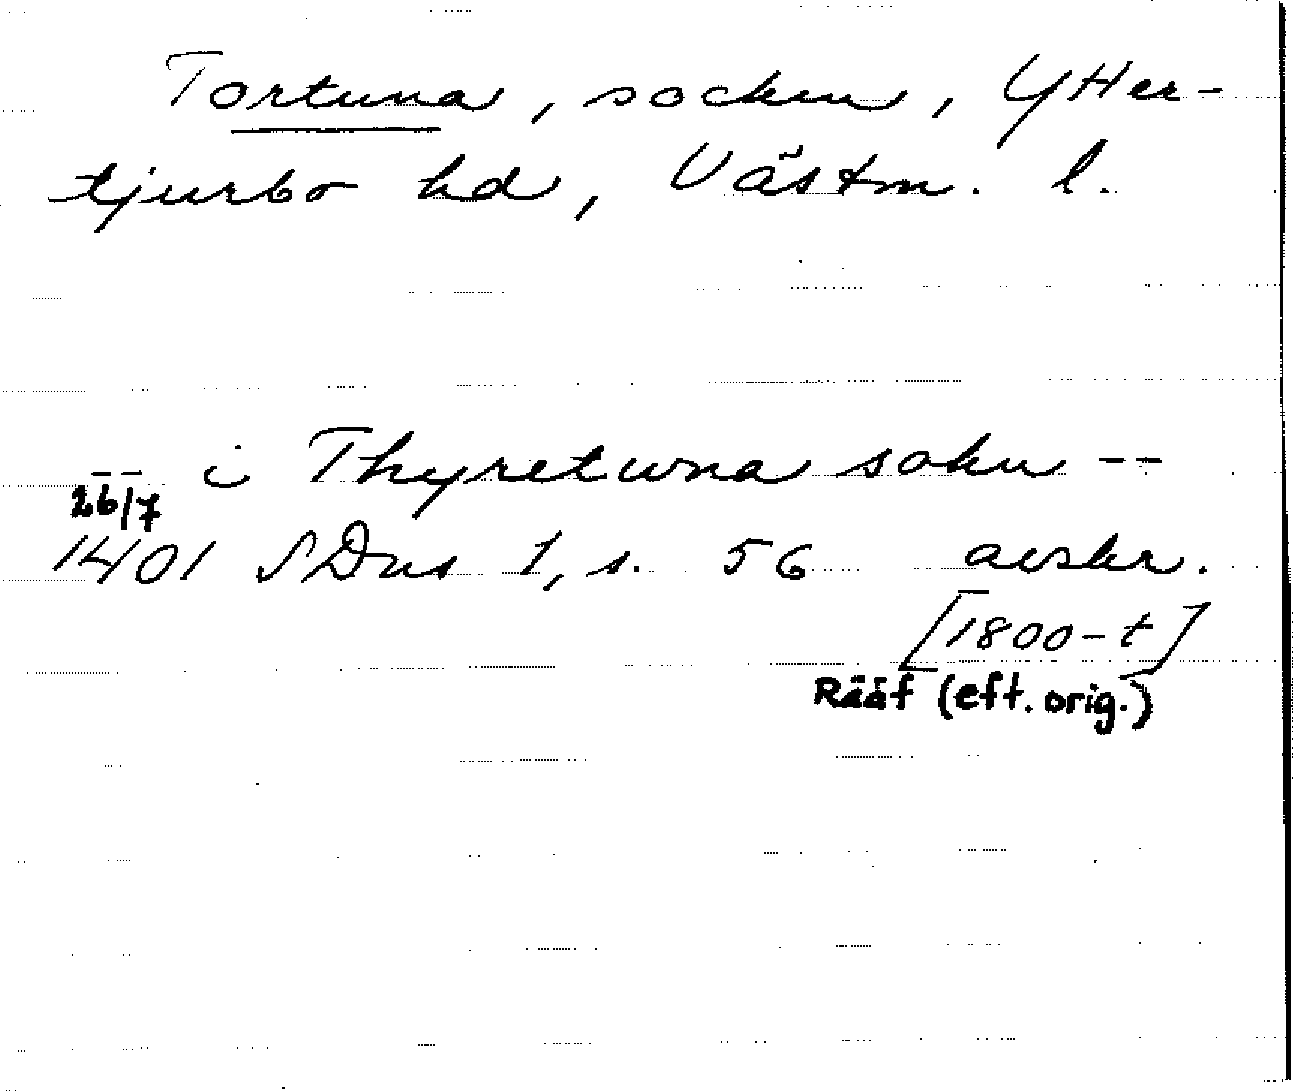 Tortuna, socken, Ytter-
tjurbo hd, Västm. l.
-- i Thyretuna sokn --
26/7
1401 SDns 1, s. 56 avskr.
[1800-t]
Rääf (eft. orig.)